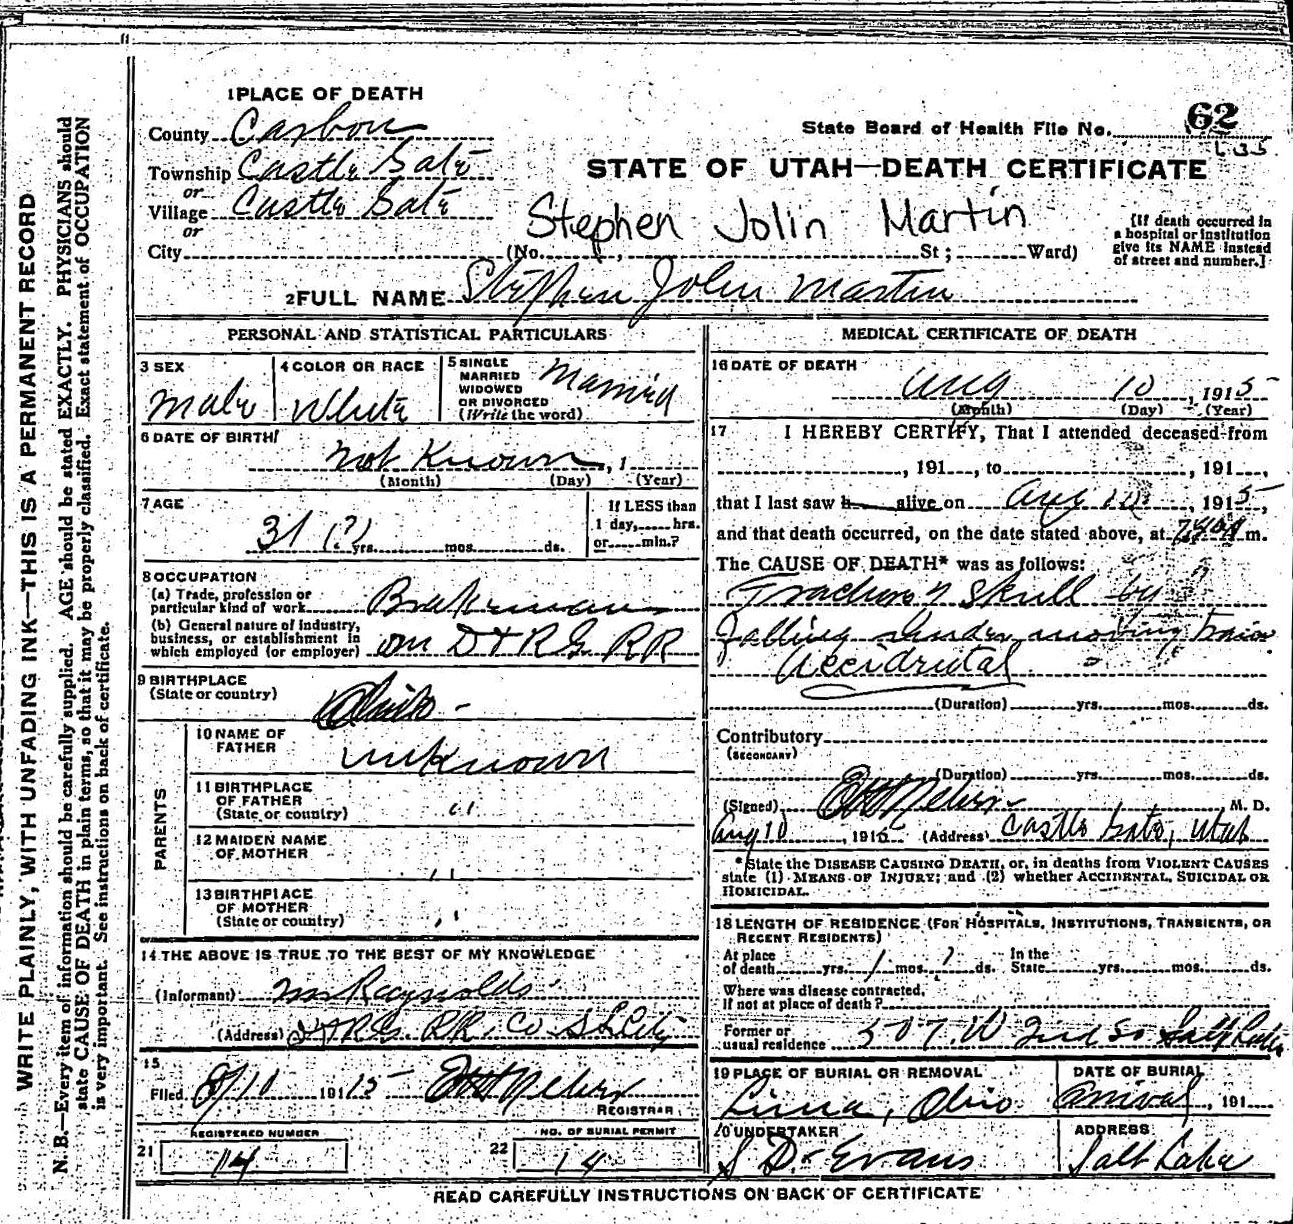 1 PLACE OF DEATH
County Carbon
Township Castle Gate
or
Village Castle Gate
or
City
State Board of Health File No. 62
L 35
STATE OF UTAH—DEATH CERTIFICATE
Stephen John Martin
(No. , St ; Ward)
[If death occurred in a hospital or institution give its NAME instead of street and number.]
2 FULL NAME Stephen John Martin
PERSONAL AND STATISTICAL PARTICULARS
3 SEX
Male
4 COLOR OR RACE
White
5 SINGLE MARRIED WIDOWED OR DIVORCED (Write the word)
Married
6 DATE OF BIRTH
Not Known, 1
(Month) (Day) (Year)
7 AGE
31 (?) yrs. mos. ds.
If LESS than 1 day, hrs. or min.?
8 OCCUPATION
(a) Trade, profession or particular kind of work Brakeman
(b) General nature of industry, business, or establishment in which employed (or employer) on D & R G RR
9 BIRTHPLACE
(State or country)
PARENTS
10 NAME OF FATHER
unknown
11 BIRTHPLACE OF FATHER (State or country) ''
12 MAIDEN NAME OF MOTHER ''
13 BIRTHPLACE OF MOTHER (State or country) ''
14 THE ABOVE IS TRUE TO THE BEST OF MY KNOWLEDGE
(Informant) Mr Raynolds
(Address) D & RG RR Co S L City
15
Filed 8/10 1915
REGISTRAR
REGISTERED NUMBER
21 14
NO. OF BURIAL PERMIT
22 14
MEDICAL CERTIFICATE OF DEATH
16 DATE OF DEATH
Aug 10, 1915
(Month) (Day) (Year)
17 I HEREBY CERTIFY, That I attended deceased from
, 191 , to , 191 ,
that I last saw h alive on Aug 10, 1915,
and that death occurred, on the date stated above, at m.
The CAUSE OF DEATH* was as follows:
Fracture of Skull by
falling under moving train
Accidental
(Duration) yrs. mos. ds.
Contributory
(SECONDARY)
(Duration) yrs. mos. ds.
(Signed) M. D.
Aug 10, 1915 (Address) Castle Gate, Utah
*State the DISEASE CAUSING DEATH, or, in deaths from VIOLENT CAUSES
state (1) MEANS OF INJURY; and (2) whether ACCIDENTAL, SUICIDAL OR
HOMICIDAL.
18 LENGTH OF RESIDENCE (FOR HOSPITALS, INSTITUTIONS, TRANSIENTS, OR
RECENT RESIDENTS)
At place of death yrs. 1 mos. ? ds. In the State yrs. mos. ds.
Where was disease contracted,
If not at place of death?
Former or usual residence 507 W 2nd So Salt Lake
19 PLACE OF BURIAL OR REMOVAL
Lima, Ohio
DATE OF BURIAL
arrival, 191
20 UNDERTAKER
S D Evans
ADDRESS
Salt Lake
READ CAREFULLY INSTRUCTIONS ON BACK OF CERTIFICATE
WRITE PLAINLY, WITH UNFADING INK—THIS IS A PERMANENT RECORD
N. B.—Every item of information should be carefully supplied. AGE should be stated EXACTLY. PHYSICIANS should
state CAUSE OF DEATH in plain terms, so that it may be properly classified. Exact statement of OCCUPATION
is very important. See instructions on back of certificate.